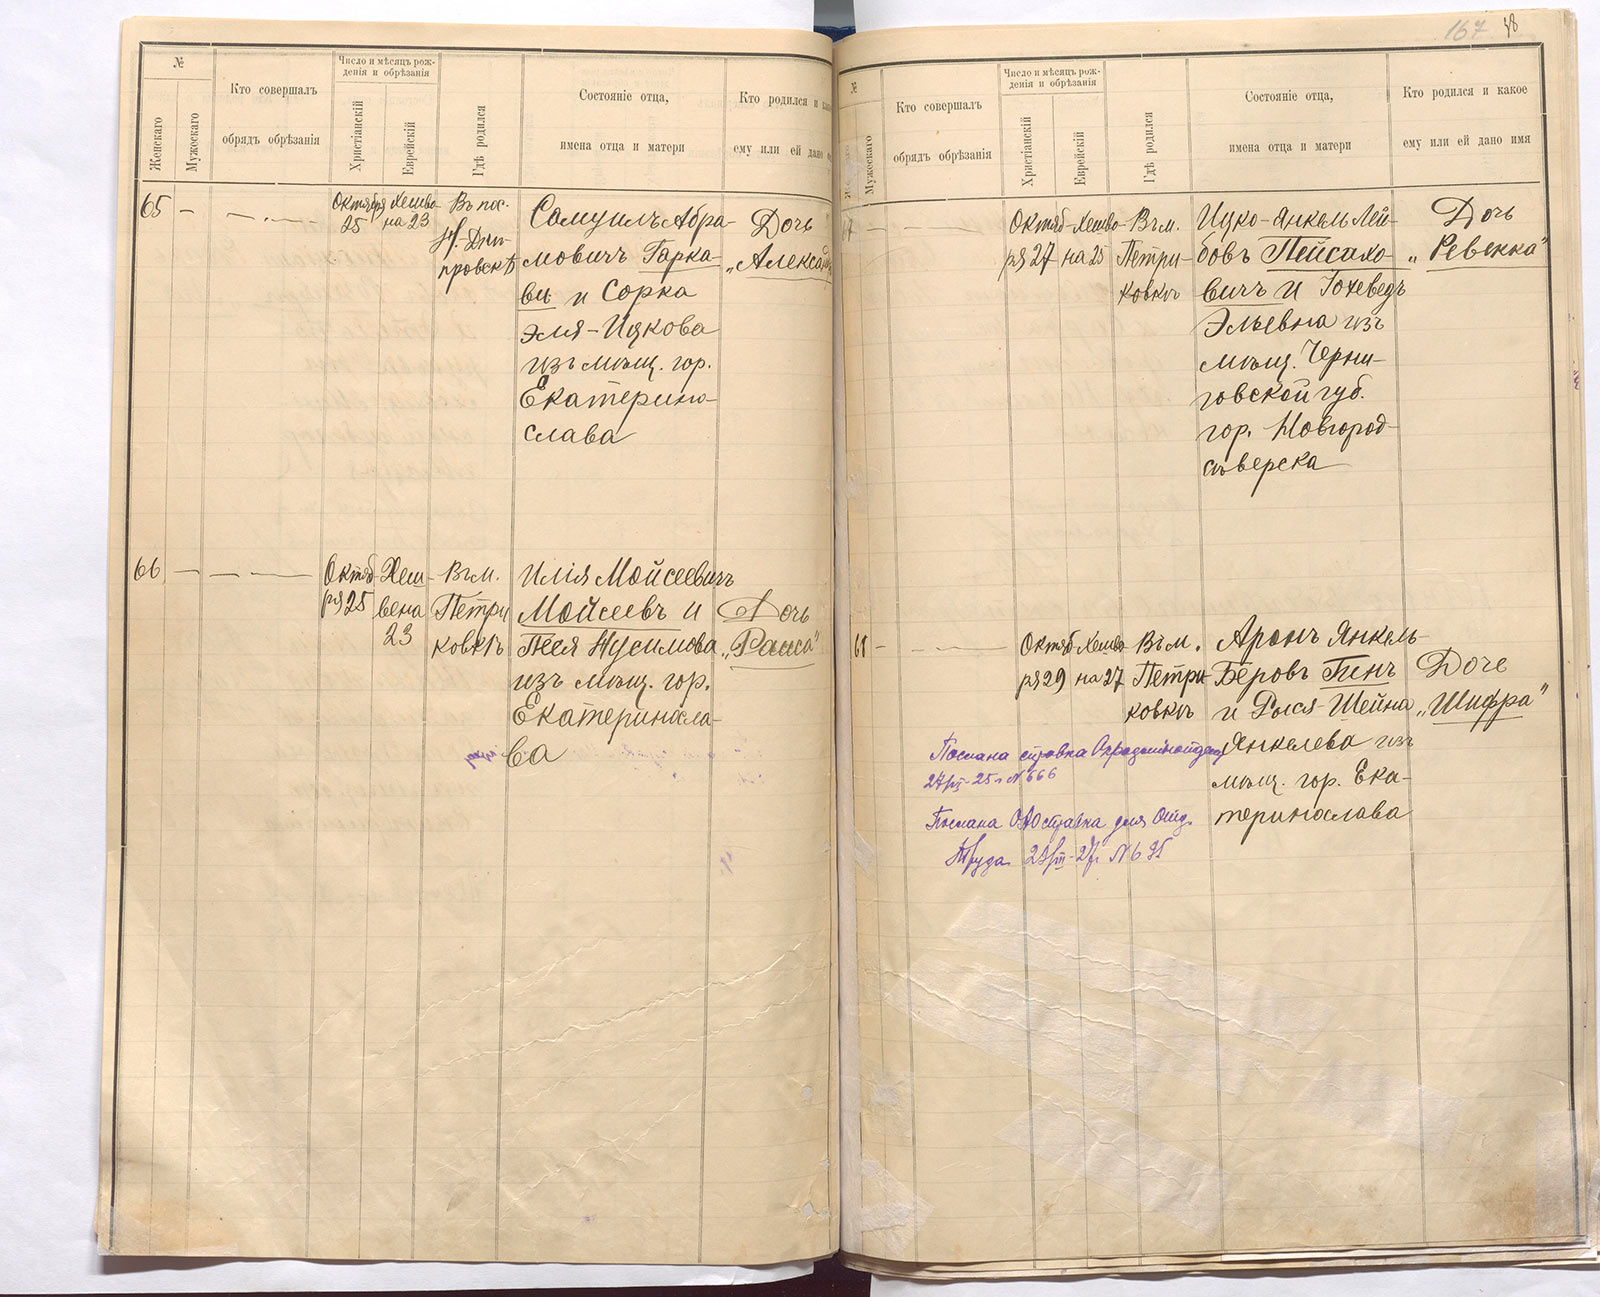 №
Женскаго
Мужескаго
Кто совершалъ
обрядъ обрѣзанія
Число и мѣсяцъ рож-
денія и обрѣзанія
Христіанскій
Еврейскій
Гдѣ родился
Состояніе отца,
имена отца и матери
Кто родился и
ему или ей дано
65
Октября
25
Хешво-
на 23
Въ пос.
Дни-
провскѣ
Самуилъ Абра-
мовичъ Гарка-
ви и Сорка
Эля-Ицкова
изъ мѣщ. гор.
Екатерино-
слава
Дочь
66
Октяб-
ря 25
Хеш-
вена
23
Въ м.
Петри
ковкѣ
Илія Мойсеевичъ
Мойсеевъ и
Песя Нусимова
изъ мѣщ. гор.
Екатериносла-
ва
Дочь
„Раиса"
167 38
№
Мужескаго
Кто совершалъ
обрядъ обрѣзанія
Число и мѣсяцъ рож-
денія и обрѣзанія
Христіанскій
Еврейскій
Гдѣ родился
Состояніе отца,
имена отца и матери
Кто родился и какое
ему или ей дано имя
Октяб-
ря 27
Хешво-
на 25
Въ м.
Петри-
ковкѣ
Ицко-Янкель Лей-
бовъ Пейсахо-
вичъ и Іохеведъ
Эльевна изъ
мѣщ. Черни-
говской губ.
гор. Новгород-
сѣверска
Дочь
„Ревекка"
68
Октяб-
ря 29
Хешво-
на 27
Въ м.
Петри-
ковкѣ
Аронъ Янкель-
Беровъ Генъ
и Рыся-Шейна
Янкелева изъ
мѣщ. гор. Ека-
теринослава
Дочь
„Шифра"
Послана справка
№ 666
Послана справка для
Труда